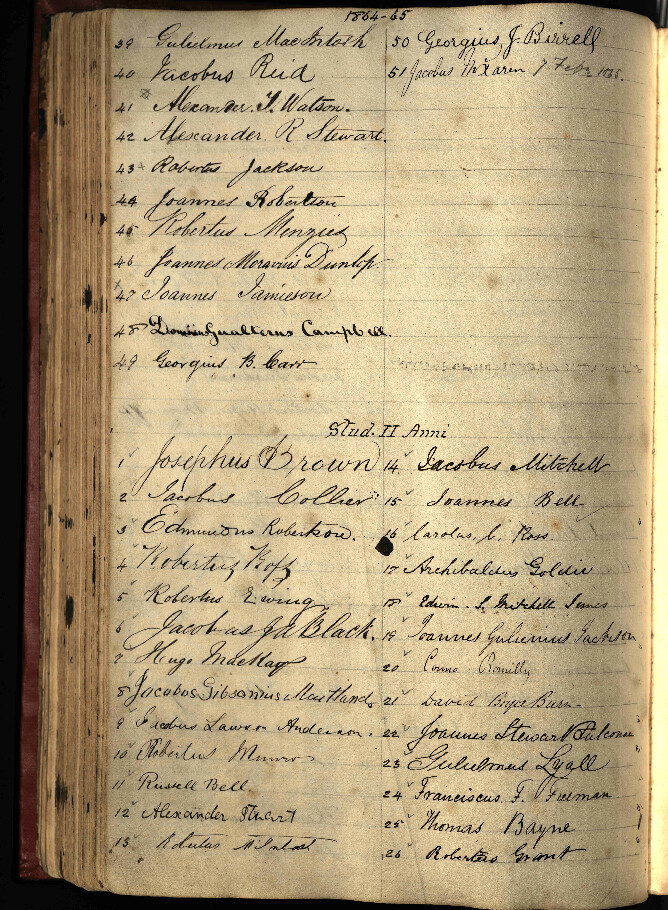 1864-65
39 Gulielmus MacIntosh
40 Jacobus Reid
41 Alexander. T. Watson.
42 Alexander R Stewart.
43 Robertus Jackson
44 Joannes Robertson
45 Robertus Menzies
46 Joannes Moravius Dunlop.
47 Joannes Jamieson
48 Gualterus Campbell.
49 Georgius B. Carr
50 Georgius J. Birrell
51 Jacobus McLaren 7 Feby 1865.
Stud. II Anni
1 Josephus Brown
2 Jacobus Collier
3 Edmundus Robertson.
4 Robertus
5 Robertus Ewing
6 Jacobus Black.
7 Hugo MacKay
8 Jacobus Gibsonius Maitland
9 Jacobus Lawson Anderson.
10 Robertus Munro
11 Russell Bell
12 Alexander Stuart
13 Robertus McIntosh
14 Jacobus Mitchell
15 Joannes Bell
16 Carolus C. Ross.
17 Archibaldus Goldie
18 Edwin. S. Mitchell Innes
19 Joannes Gulielmus Jackson
20 Cosmo Romilly
21 David Bryce Burn
22 Joannes Stewart Falconer
23 Gulielmus Lyall
24 Franciscus. F. Freeman
25 Thomas Bayne
26 Robertus Grant